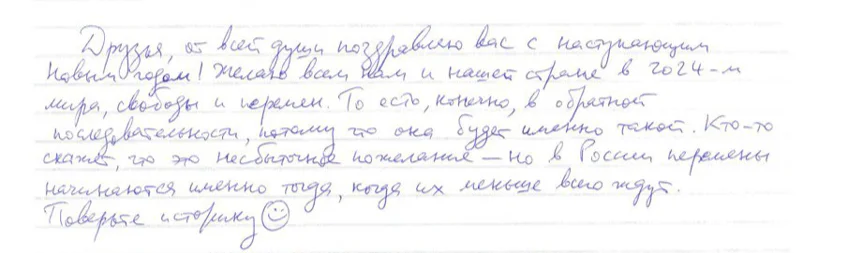 Друзья, от всей души поздравляю вас с наступающим
Новым годом! Желаю всем нам и нашей стране в 2024-м
мира, свободы и перемен. То есть, конечно, в обратной
последовательности, потому что она будет именно такой. Кто-то
скажет, что это несбыточное пожелание – но в России перемены
начинаются именно тогда, когда их меньше всего ждут.
Поверьте историку ☺